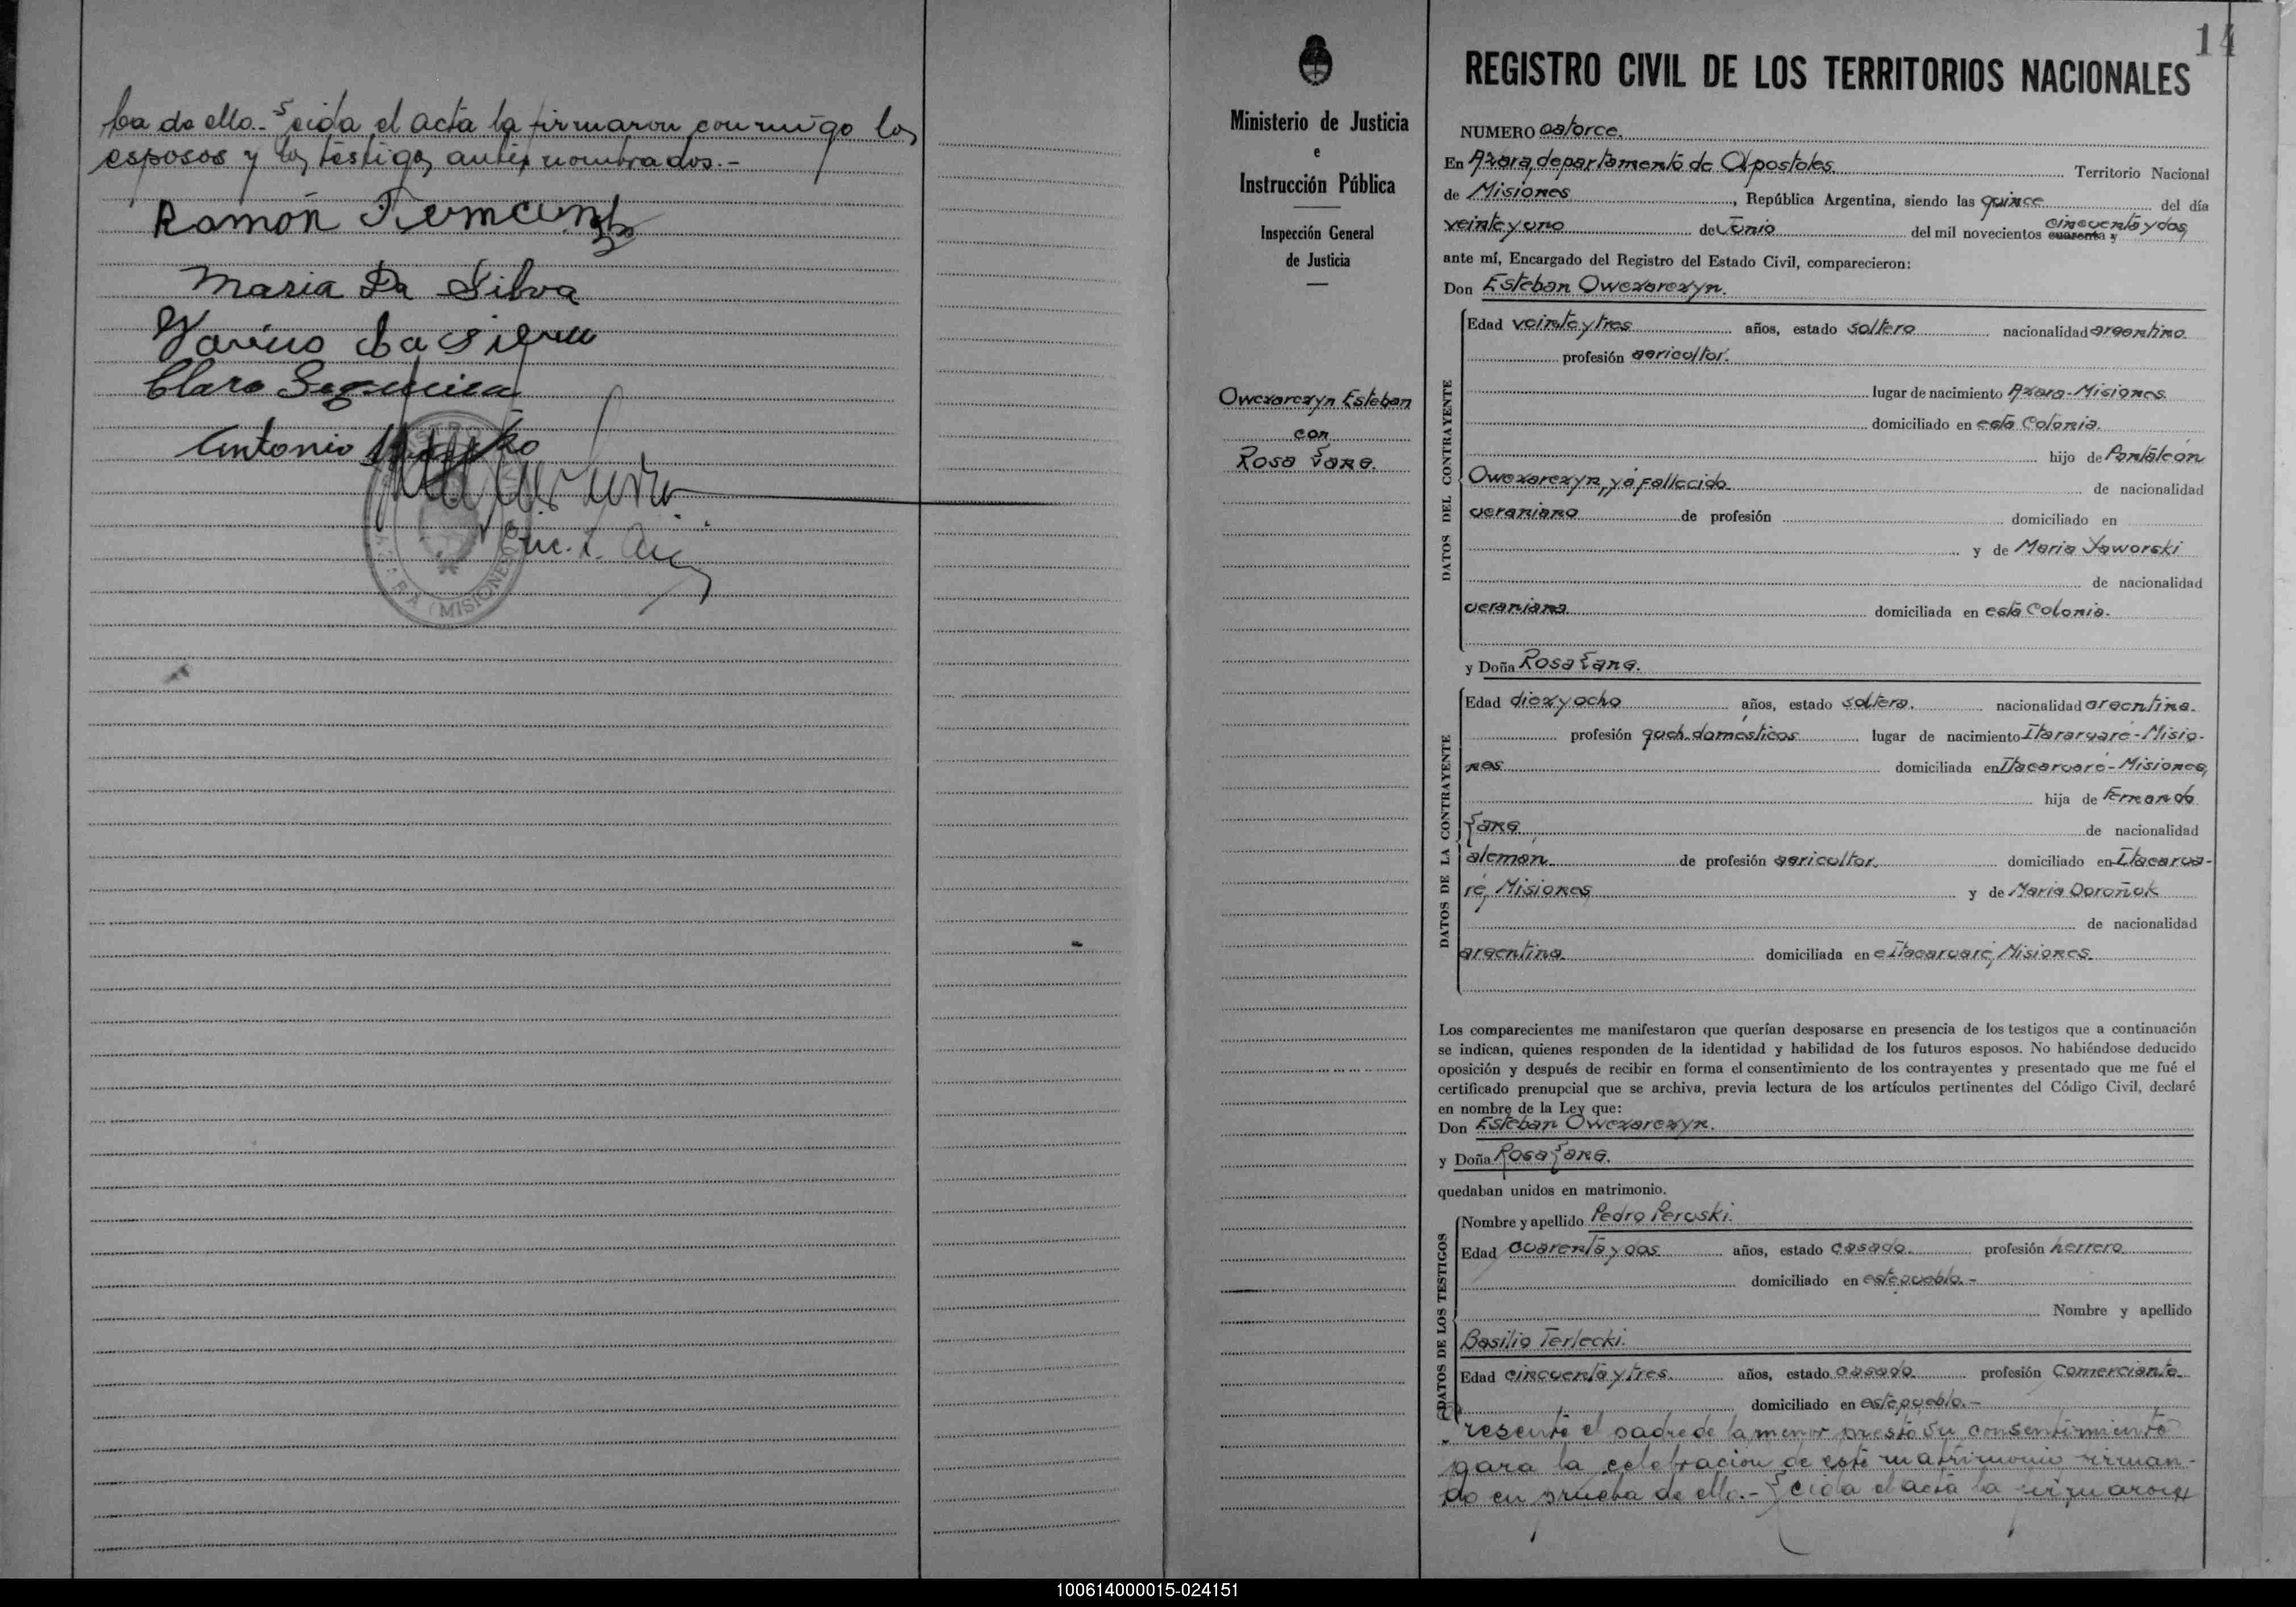 ba de ello.- Leida el acta la firmaron conmigo los
esposos y los testigos antes nombrados.-
Ramón
Maria Da Silva
da Silva
Claro
Antonio
(MISIONES)
14
Ministerio de Justicia
e
Instrucción Pública
Inspección General
de Justicia
Owczarczyn Esteban
con
Rosa Lang.
REGISTRO CIVIL DE LOS TERRITORIOS NACIONALES
NUMERO catorce.
En Azara, departamento de Apostoles Territorio Nacional
de Misiones, República Argentina, siendo las quince del día
veinte y uno de Junio del mil novecientos cuarenta y cincuenta y dos,
ante mí, Encargado del Registro del Estado Civil, comparecieron:
Don Esteban Owczarczyn.
DATOS DEL CONTRAYENTE
Edad veinte y tres años, estado soltero nacionalidad argentino
profesión agricultor.
lugar de nacimiento Azara-Misiones
domiciliado en esta Colonia.
hijo de Pantaleón
Owczarczyn, ya fallecido de nacionalidad
ucraniano de profesión domiciliado en
y de Maria Jaworski
de nacionalidad
ucraniana domiciliada en esta Colonia.
y Doña Rosa Lang.
DATOS DE LA CONTRAYENTE
Edad diez y ocho años, estado soltera. nacionalidad argentina.
profesión queh. domésticos lugar de nacimiento Itararuaré-Misio-
nes domiciliada en Itacaruaré-Misiones,
hija de Fernando
Lang de nacionalidad
alemán de profesión agricultor domiciliado en Itacarua-
ré, Misiones y de Maria Doroñuk
de nacionalidad
argentina domiciliada en e Itacaruaré, Misiones.
Los comparecientes me manifestaron que querían desposarse en presencia de los testigos que a continuación
se indican, quienes responden de la identidad y habilidad de los futuros esposos. No habiéndose deducido
oposición y después de recibir en forma el consentimiento de los contrayentes y presentado que me fué el
certificado prenupcial que se archiva, previa lectura de los artículos pertinentes del Código Civil, declaré
en nombre de la Ley que:
Don Esteban Owczarczyn.
y Doña Rosa Lang.
quedaban unidos en matrimonio.
DATOS DE LOS TESTIGOS
Nombre y apellido Pedro Peruski.
Edad cuarenta y dos años, estado casado profesión herrero
domiciliado en este pueblo.-
Nombre y apellido
Basilio Terlecki.
Edad cincuenta y tres años, estado casado profesión comerciante
domiciliado en este pueblo.-
Presente el padre de la menor prestó su consentimiento
para la celebración de este matrimonio firman-
do en prueba de ello.- Leida el acta la firmaron
100614000015-024151